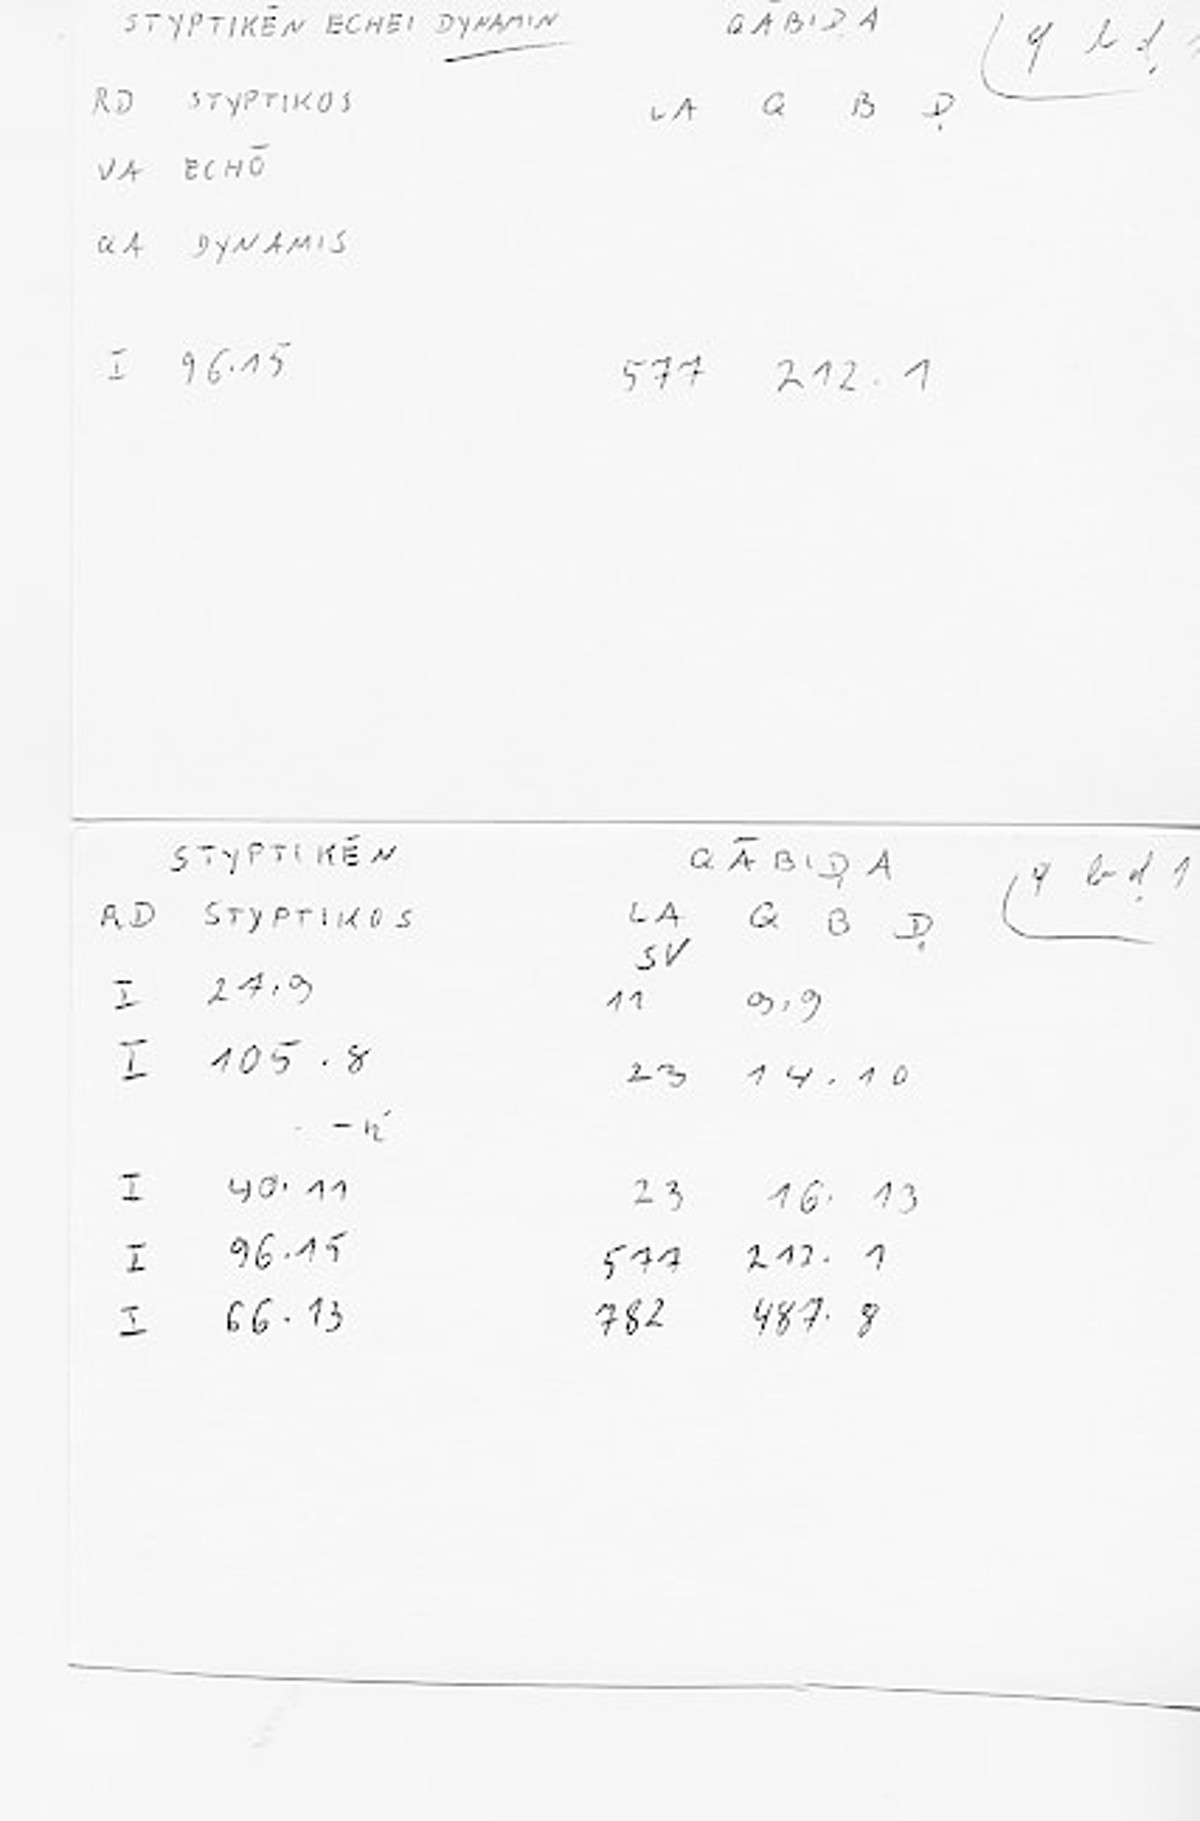 STYPTIKĒN ECHEI DYNAMIN QĀBIḌA q b ḍ 1
RD STYPTIKOS LA Q B Ḍ
VA ECHŌ
QA DYNAMIS
I 96.15 577 212.1
STYPTIKĒN QĀBIḌA q b ḍ 1
RD STYPTIKOS LA Q B Ḍ
SV
I 27.9 11 9.9
I 105.8 23 14.10
I 40.11 23 16.13
I 96.15 577 212.1
I 66.13 782 487.8